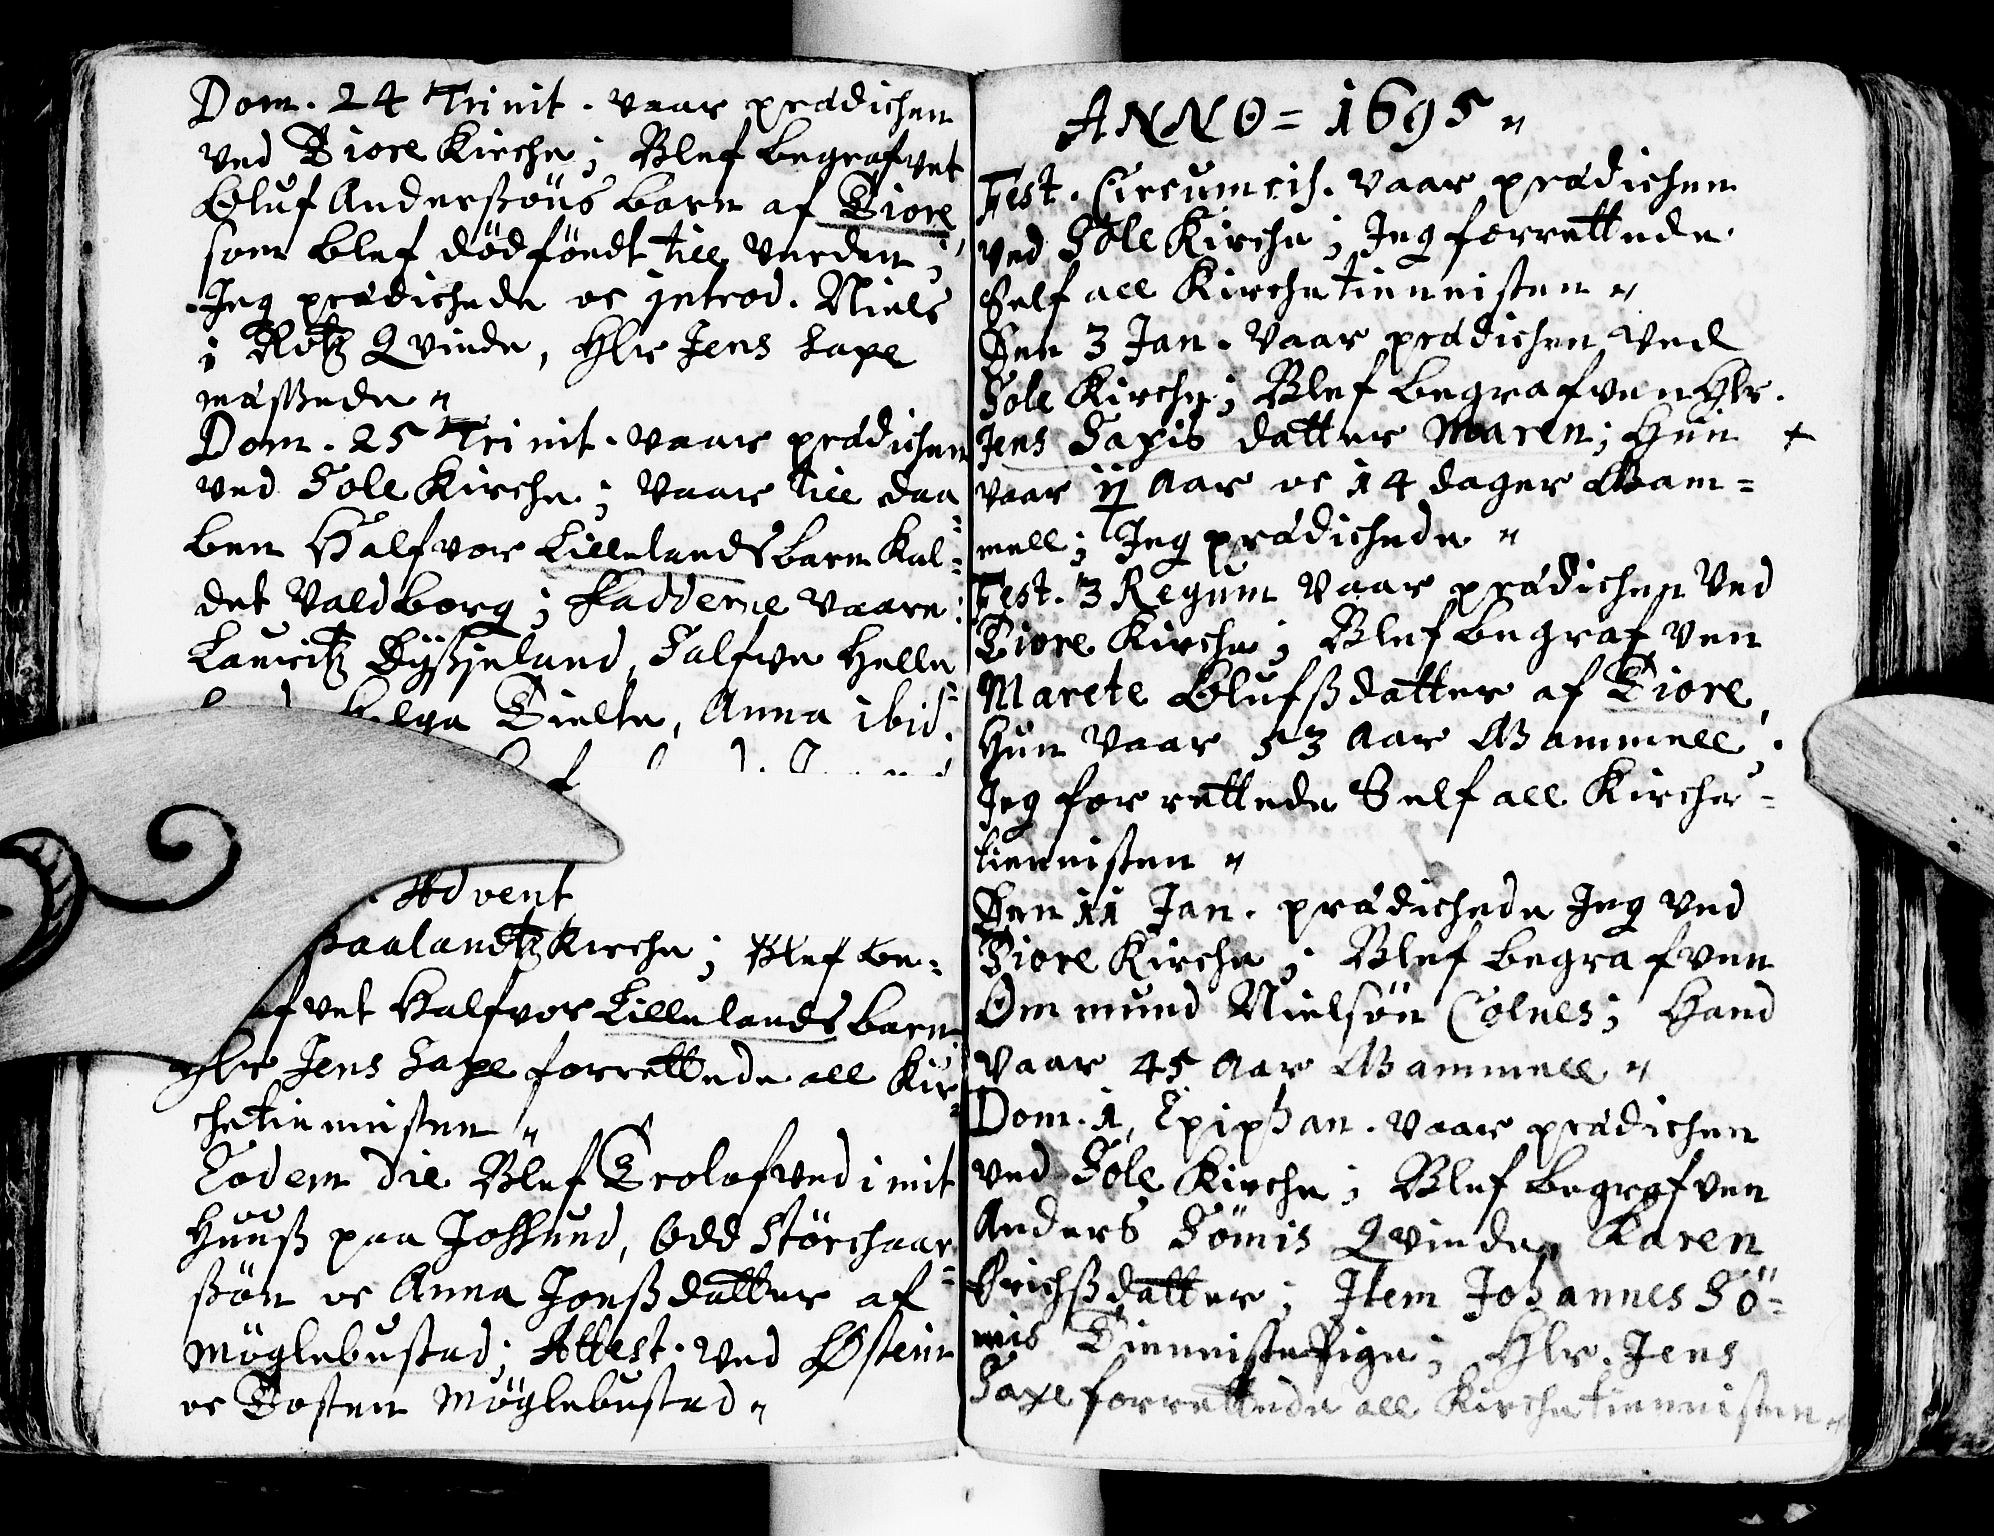 Dom. 24 Trinit. vaar prædichen
ved Tiore Kirche; Blef begrafvet
Oluf Anderßöns barn af Tiore,
som blef dödföedt till verden;
Jeg prædichede oc introd. Niels
i Rötz Qvinde, Hlr Jens Saxe
mäßede "
Dom. 25 Trinit. vaar prædichen
ved Sole Kirche; vaar till daa=
ben Halfvor Lillelands barn kal=
det Valdborg; Fadderne vaare:
Lauritz Syßjeland, Salfve Helle=
Helga Tielte, Anna ibid.
Advent
Kirche; Blef be=
afvet Halfvor Lillelands barn
Hlr Jens Saxe forrettede all Kir=
chetiennisten "
Eodem die Blef Trolofved i mit
Huuß paa Joßund, Odd Störchaar=
ßön oc Anna Jonßdatter af
Möglebustad; Attest. ved Østein
oc Tosten Möglebustad "
ANNO = 1695 "
Fest. Circumcis. vaar prædichen
ved Sole Kirche; Jeg forrettede
Self all Kirchetiennisten "
Den 3 Jan. vaar prædichen ved
Sole Kirche; Blef begrafven Hlr.
Jens Saxis datter Maren; Hun +
vaar 17 Aar oc 14 dager Gam=
mell; Jeg prædichede "
Fest. 3 Regum vaar prædichen ved
Tiore Kirche; Blef begrafven
Marete Olufßdatter af Tiore,
Hun vaar 53 Aar Gammell;
Jeg forrettede Self all Kirche=
tiennisten "
Den 11 Jan. prædichede Jeg ved
Tiore Kirche; Blef begrafven
Ommund Nielsön Colnes; Hand
vaar 45 Aar Gammell "
Dom. 1, Epiphan. vaar prædichen
ved Sole Kirche; Blef begrafven
Anders Sömis Qvinde, Karen
Erichßdatter; Item Johannes Sö=
mis Tienniste Pige; Hlr. Jens
Saxe forrettede all Kirchetiennisten "